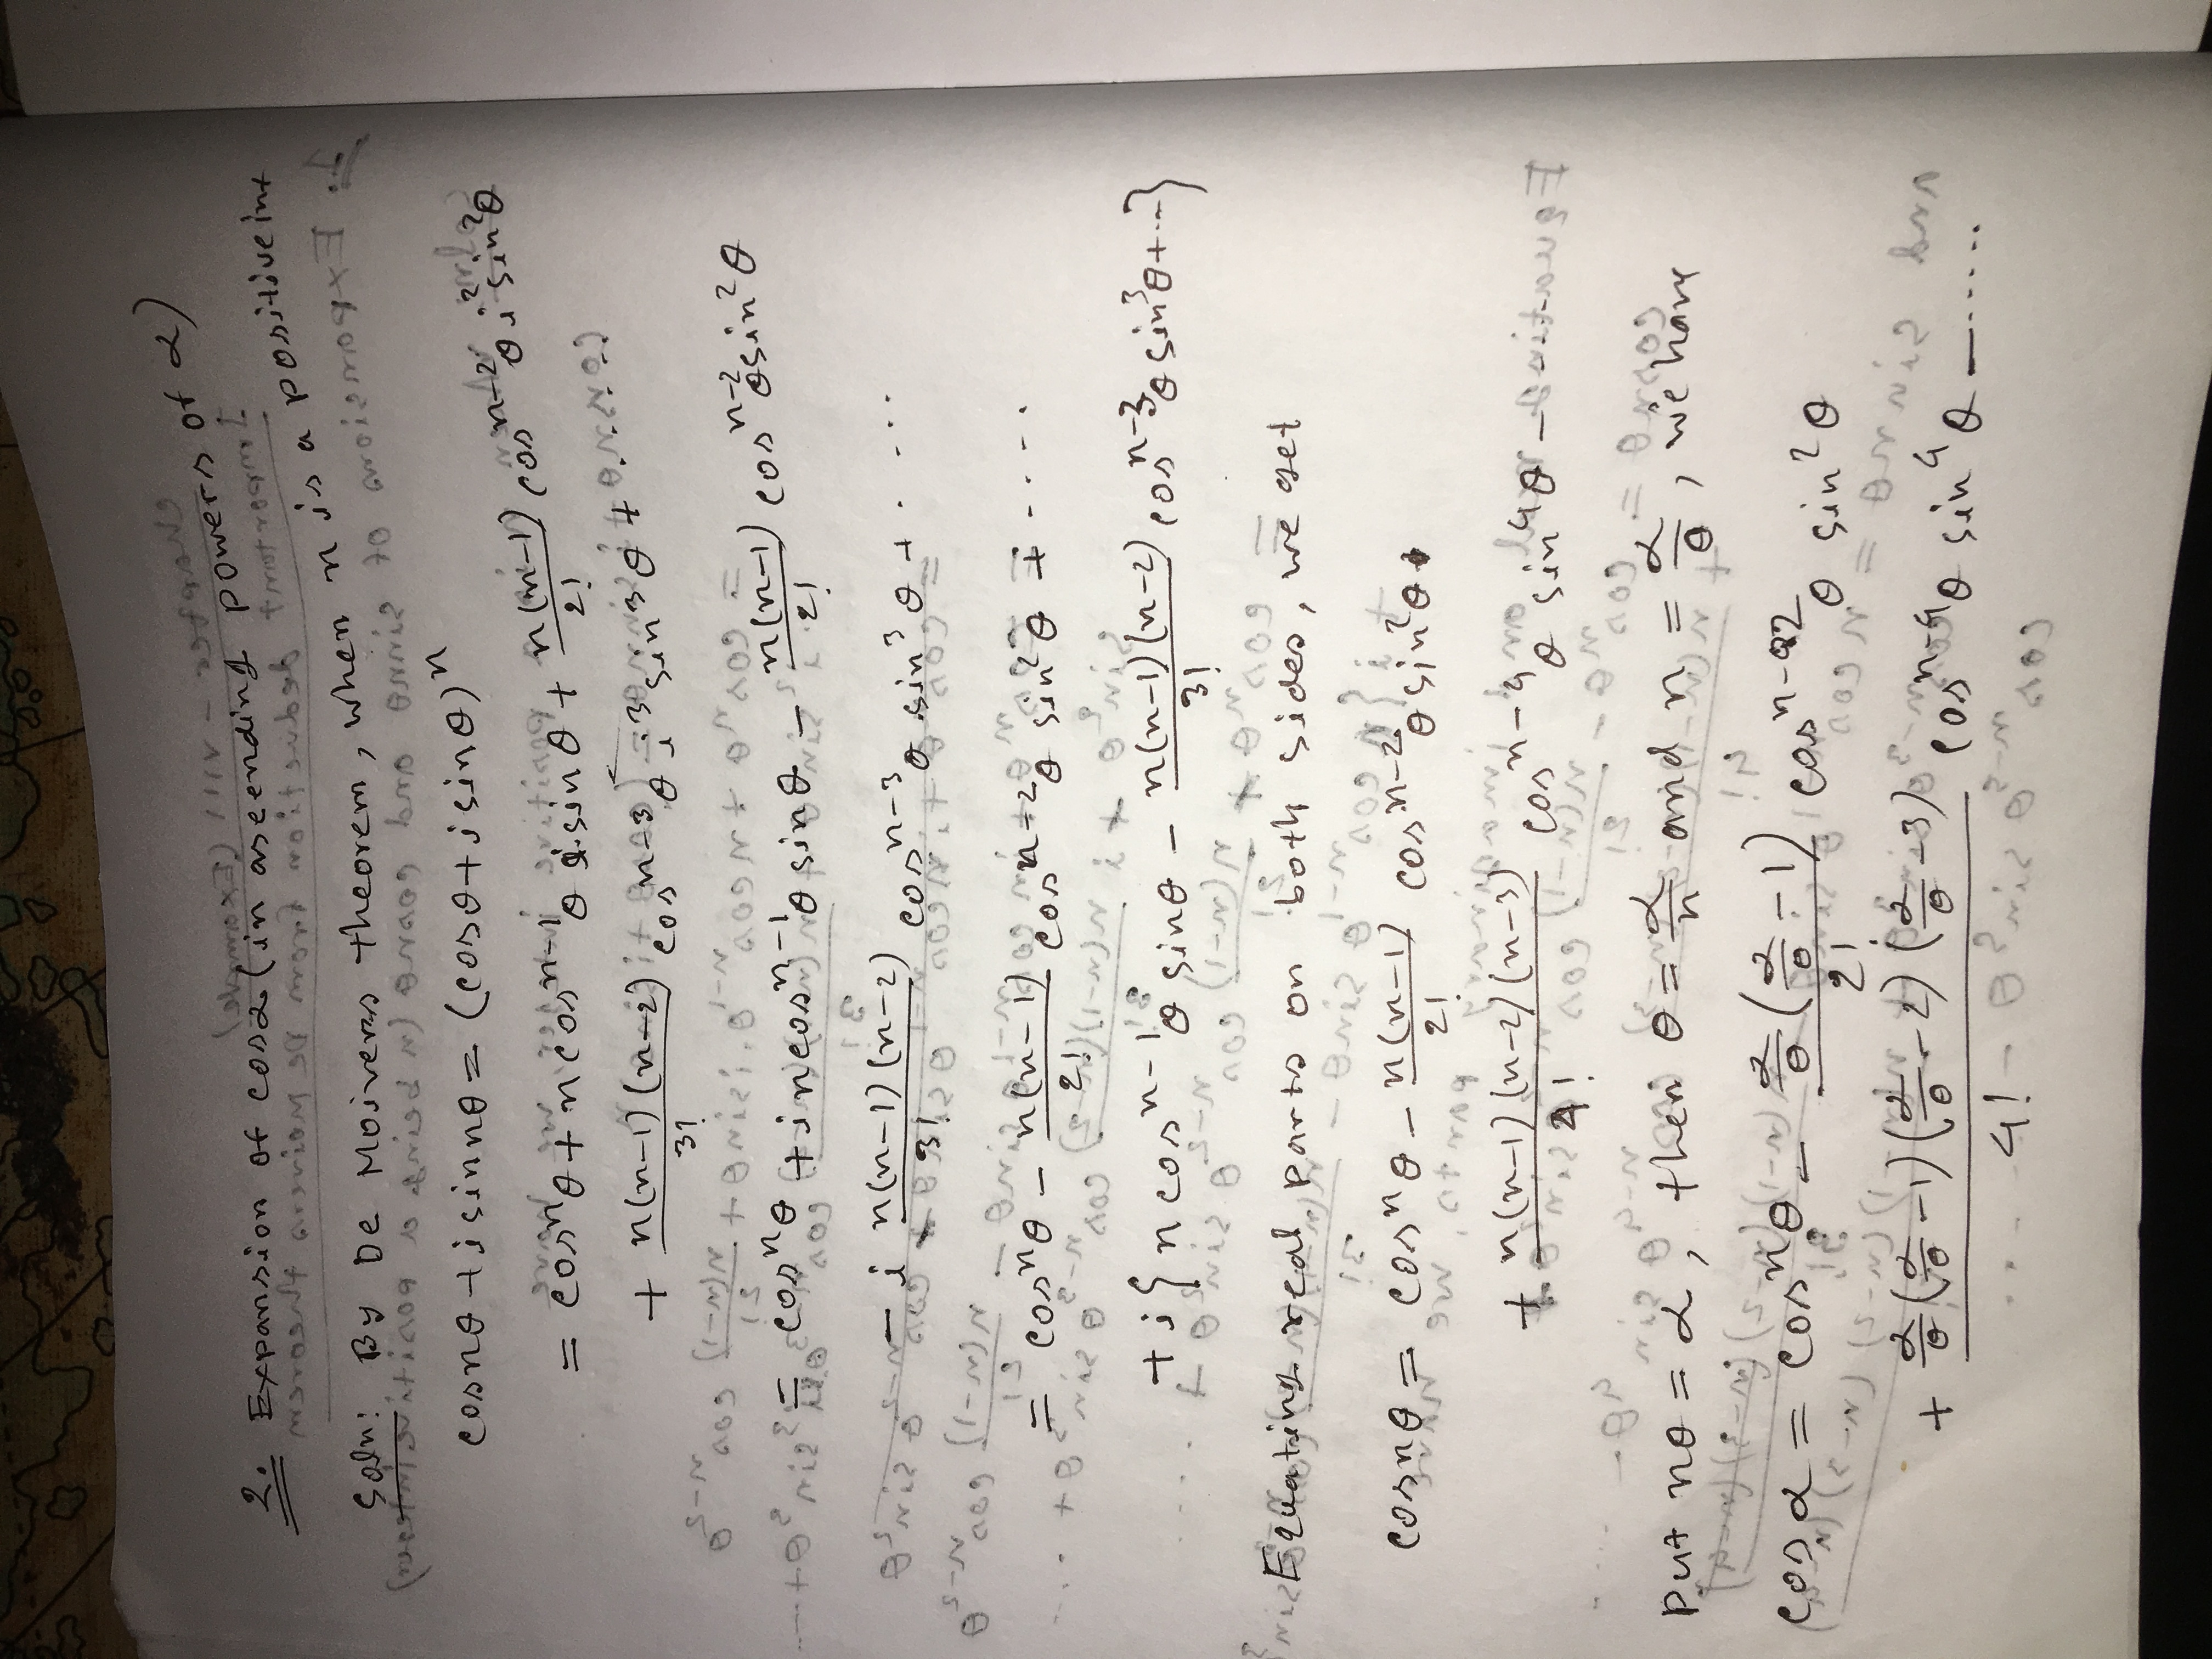 2. Expansion of cosα (in ascending powers of α)
Soln: By De Moivers theorem, when n is a positive int
cosnθ + i sinnθ = (cosθ + i sinθ)^n
= cos^nθ + n cos^{n-1}θ i sinθ + n(n-1)/2! cos^{n-2}θ i^2 sin^2θ
+ n(n-1)(n-2)/3! cos^{n-3}θ i^3 sin^3θ + .....
= cos^nθ + i n cos^{n-1}θ sinθ - n(n-1)/2! cos^{n-2}θ sin^2θ
- i n(n-1)(n-2)/3! cos^{n-3}θ sin^3θ + ....
= cos^nθ - n(n-1)/2! cos^{n-2}θ sin^2θ + ....
+ i { n cos^{n-1}θ sinθ - n(n-1)(n-2)/3! cos^{n-3}θ sin^3θ + ... }
Equating real parts on both sides, we get
cosnθ = cos^nθ - n(n-1)/2! cos^{n-2}θ sin^2θ
+ n(n-1)(n-2)(n-3)/4! cos^{n-4}θ sin^4θ - ....
Put nθ = α, then θ = α/n and n = α/θ, we have
cosα = cos^nθ - α/θ(α/θ - 1)/2! cos^{n-2}θ sin^2θ
+ α/θ(α/θ - 1)(α/θ - 2)(α/θ - 3)/4! cos^{n-4}θ sin^4θ - ......